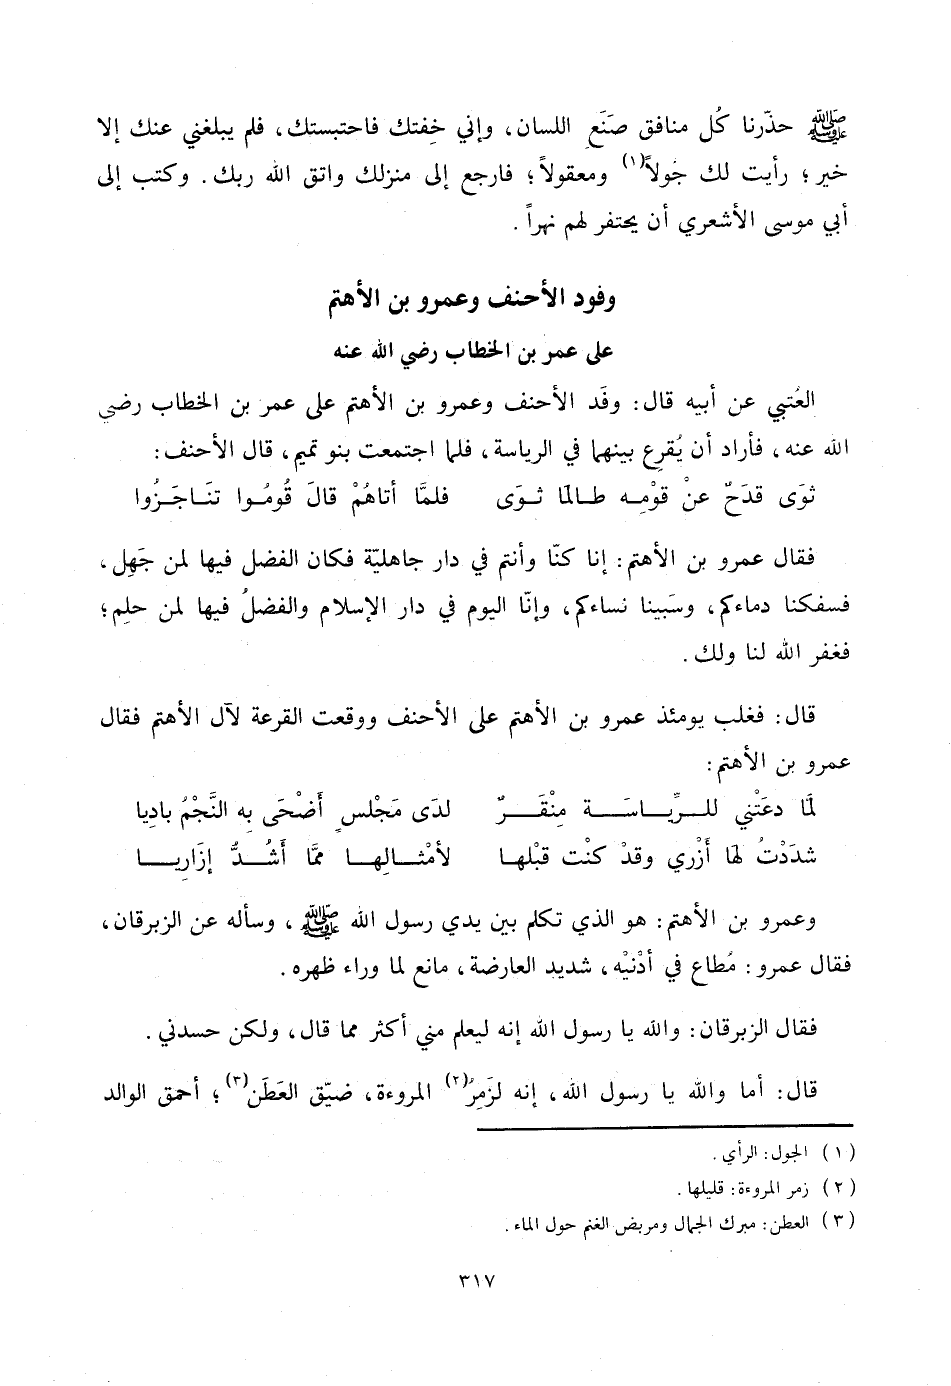 ﷺ حذّرنا كُل منافق صنَعِ اللسان، وإني خِفتك فاحتبستك، فلم يبلغني عنك إلا
خير؛ رأيت لك جُولاً(١) ومعقولاً؛ فارجع إلى منزلك واتق الله ربك. وكتب إلى
أبي موسى الأشعري أن يحتفر لهم نهراً.
وفود الأحنف وعمرو بن الأهتم
على عمر بن الخطاب رضي الله عنه
العُتبي عن أبيه قال: وفَد الأحنف وعمرو بن الأهتم على عمر بن الخطاب رضي
الله عنه، فأراد أن يُقرِع بينهما في الرياسة، فلما اجتمعت بنو تميم، قال الأحنف:
ثوَى قدَحٌ عنْ قوْمِه طالمَا ثوَى فلمَّا أتاهُمْ قالَ قُومُوا تنَاجَزُوا
فقال عمرو بن الأهتم: إنا كنّا وأنتم في دار جاهليّة فكان الفضل فيها لمن جَهِل،
فسفكنا دماءكم، وسَبينا نساءكم، وإنّا اليوم في دار الإسلام والفضلُ فيها لمن حلِم؛
فغفر الله لنا ولك.
قال: فغلب يومئذ عمرو بن الأهتم على الأحنف ووقعت القرعة لآل الأهتم فقال
عمرو بن الأهتم:
لمَا دعَتْني للرِّيَاسَة مِنْقَرٌ لدَى مَجْلسٍ أضْحَى به النَّجْمُ باديا
شدَدْتُ لهَا أزْري وقدْ كنْت قبْلها لأمْثالِها ممَّا أشُدُّ إزَاريا
وعمرو بن الأهتم: هو الذي تكلم بين يدي رسول الله ﷺ، وسأله عن الزبرقان،
فقال عمرو: مُطاع في أدْنيْه، شديد العارضة، مانع لما وراء ظهره.
فقال الزبرقان: والله يا رسول الله إنه ليعلم مني أكثر مما قال، ولكن حسدني.
قال: أما والله يا رسول الله، إنه لزَمِرُ(٢) المروءة، ضيّق العَطَن(٣)؛ أحمق الوالد
(١) الجول: الرأي.
(٢) زمر المروءة: قليلها.
(٣) العطن: مبرك الجمال ومربض الغنم حول الماء.
٣١٧